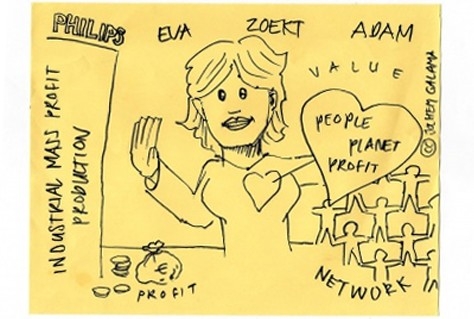 PHILIPS
EVA ZOEKT ADAM
VALUE
PEOPLE
PLANET
PROFIT
INDUSTRIAL MASS PROFIT
PRODUCTION
€
PROFIT
NETWORK
© JOCHEM GALAMA